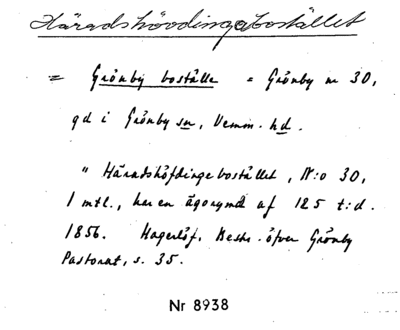 Häradshövdingebostället
= Grönby boställe = Grönby nr 30,
gd i Grönby sn, Vemm. hd.
" Häradshöfdingebostället, N:o 30,
1 mtl., har en ägorymd af 125 t:d.
1856. Hagerlöf, Beskr. öfver Grönby
Pastorat, s. 35.
Nr 8938